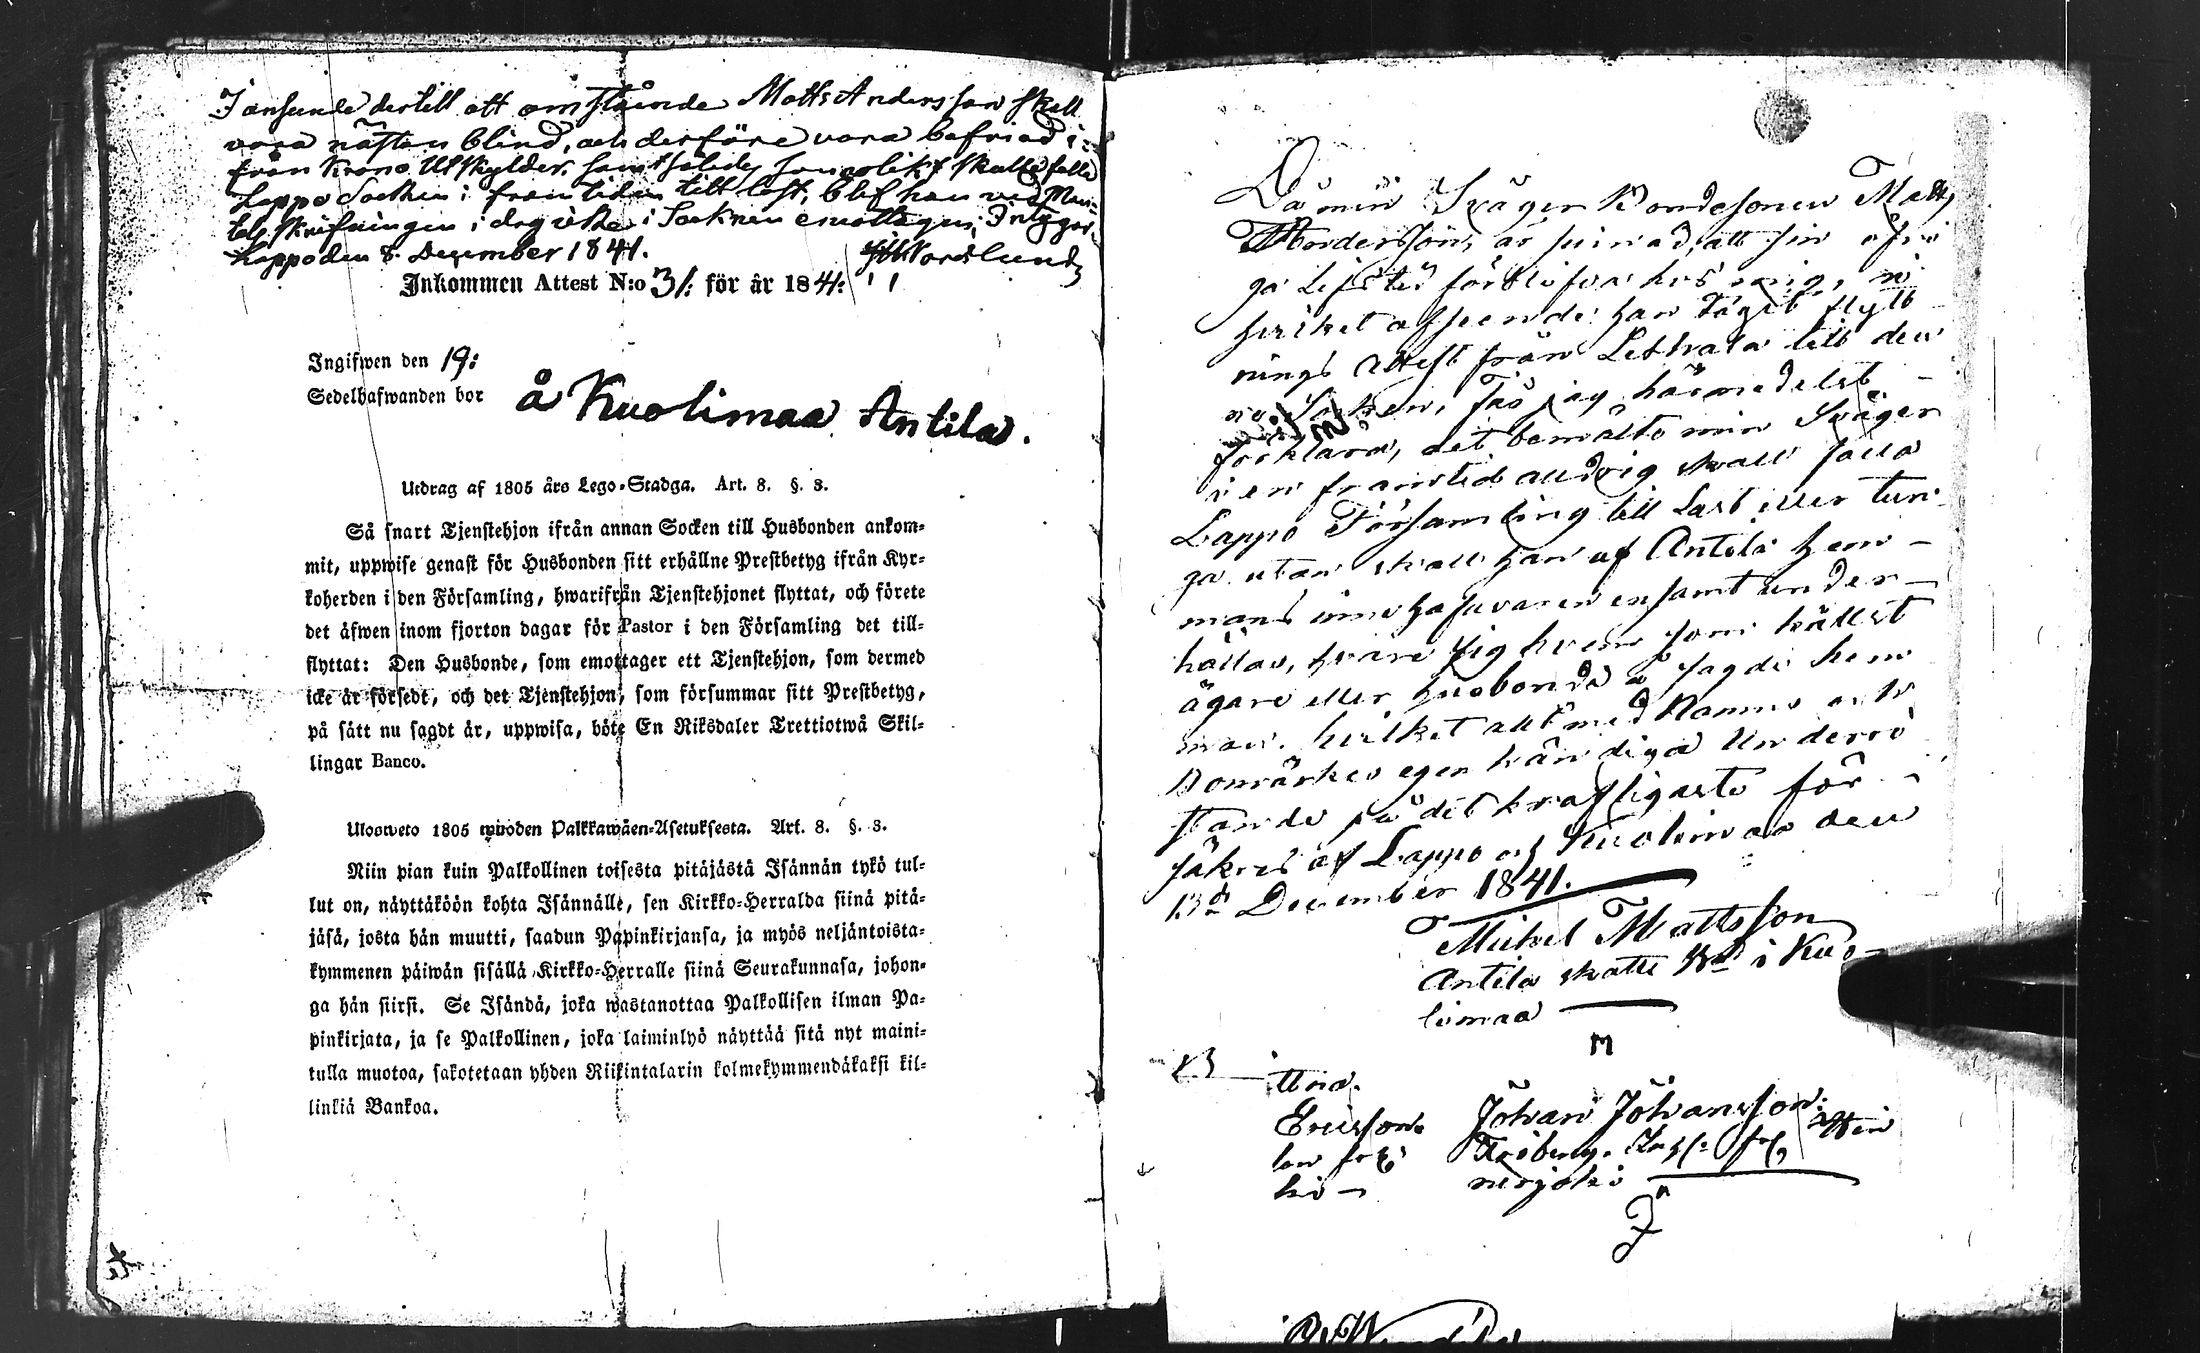 I anseende dertill att omstående Matts Andersson skall
vara nästan blind, och derföre vara befriad i-
från Krono Utskylder, samt således sannolikt skulle falla
Lappo Socken i framtiden till last, blef han vid Man-
tals skrifningen i dag icke i Socknen emottagen; Intygar.
Lappo den 8 December 1841. Nordlund
Inkommen Attest N:o 31: för år 1841:
Ingifwen den 19:
Sedelhafwanden bor å Kuolimaa Antila.
Utdrag af 1805 års Lego-Stadga. Art. 8. §. 3.
Så snart Tjenstehjon ifrån annan Socken till Husbonden ankom-
mit, uppwise genast för Husbonden sitt erhållne Prestbetyg ifrån Kyr-
koherden i den Församling, hwarifrån Tjenstehjonet flyttat, och förete
det äfwen inom fjorton dagar för Pastor i den Församling det till-
flyttat: Den Husbonde, som emottager ett Tjenstehjon, som dermed
icke är försedt, och det Tjenstehjon, som försummar sitt Prestbetyg,
på sätt nu sagdt är, uppwisa, böte En Riksdaler Trettiotwå Skil-
lingar Banco.
Ulosweto 1805 wuoden Palkkawäen-Asetuksesta. Art. 8. §. 3.
Niin pian kuin Palkollinen toisesta pitäjästä Isännän tykö tul-
lut on, näyttäköön kohta Isännälle, sen Kirkko-Herralda siinä pitä-
jäsä, josta hän muutti, saadun Papinkirjansa, ja myös neljäntoista-
kymmenen päiwän sisällä Kirkko-Herralle siinä Seurakunnasa, johon-
ga hän siirsi. Se Isändä, joka wastanottaa Palkollisen ilman Pa-
pinkirjata, ja se Palkollinen, joka laiminlyö näyttää sitä nyt maini-
tulla muotoa, sakotetaan yhden Riikintalarin kolmekymmendäkaksi kil-
linkiä Bankoa.
Då min Svåger Bondesonen Matts
Andersson, är sinnad, att sin öfri-
ga Lifstid förblifva hos mig, i
hvilket afseende han tagit flytt-
nings Attest från Lethala till den-
na Socken, Fås jag härmedelst
förklara, det bemälte min Svåger
i en framtid alldrig skall falla
Lappo Församling till Last eller tun-
ga utan skall han af Antila hem-
mans innehafvaren ensamt under-
hållas, hvare sig hvem som hällst
ägare eller husbonde å sagde hem
man. hvilket allt med Namns och
Bomärkes egenhändiga Underrö
stande på det kraftigaste för-
säkras af Lappo och Kuolimaa den
13d December 1841.
Michel Mattsson
Antila skatte Bd i Kuo-
limaa
M
ttna.
Ericsson Johan Johansson
Friberg.
nerjoki